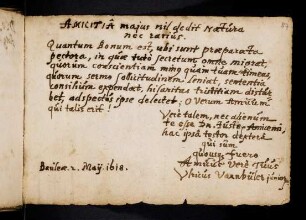 AMICITIA majus nil dedit Natura
nec rarius.
Quantum Bonum est, ubi sunt præparata
pectora, in quæ tuto secretum omne
quorum conscientiam minus quam tuam timeas,
quorum sermo solicitudinem leniat, sententia
consilium expendat, hilaritas tristitiam
bet, adspectus ipse delectet. O Verum Amicum
qui talis erit!
Vere talem, nec alienum
te esse
hac ipsa testor dextera
qui sum
quoque fuero
Amicus Vere Tuus
Basileæ 2. Maij. 1618.